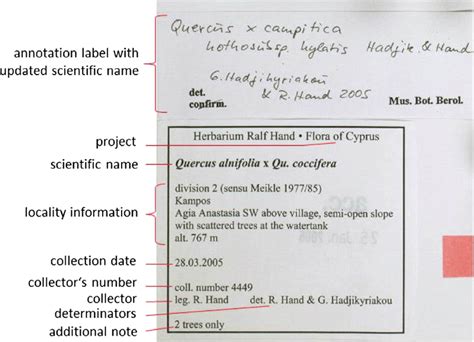 annotation label with
updated scientific name
Quercus x campitica
nothosubsp. hylatis Hadjik. & Hand
G. Hadjikyriakou
det. & R. Hand 2005
confirm. Mus. Bot. Berol.
project
Herbarium Ralf Hand • Flora of Cyprus
scientific name
Quercus alnifolia x Qu. coccifera
locality information
division 2 (sensu Meikle 1977/85)
Kampos
Agia Anastasia SW above village, semi-open slope
with scattered trees at the watertank
alt. 767 m
collection date
28.03.2005
collector's number
coll. number 4449
collector
leg. R. Hand det. R. Hand & G. Hadjikyriakou
determinators
additional note
2 trees only